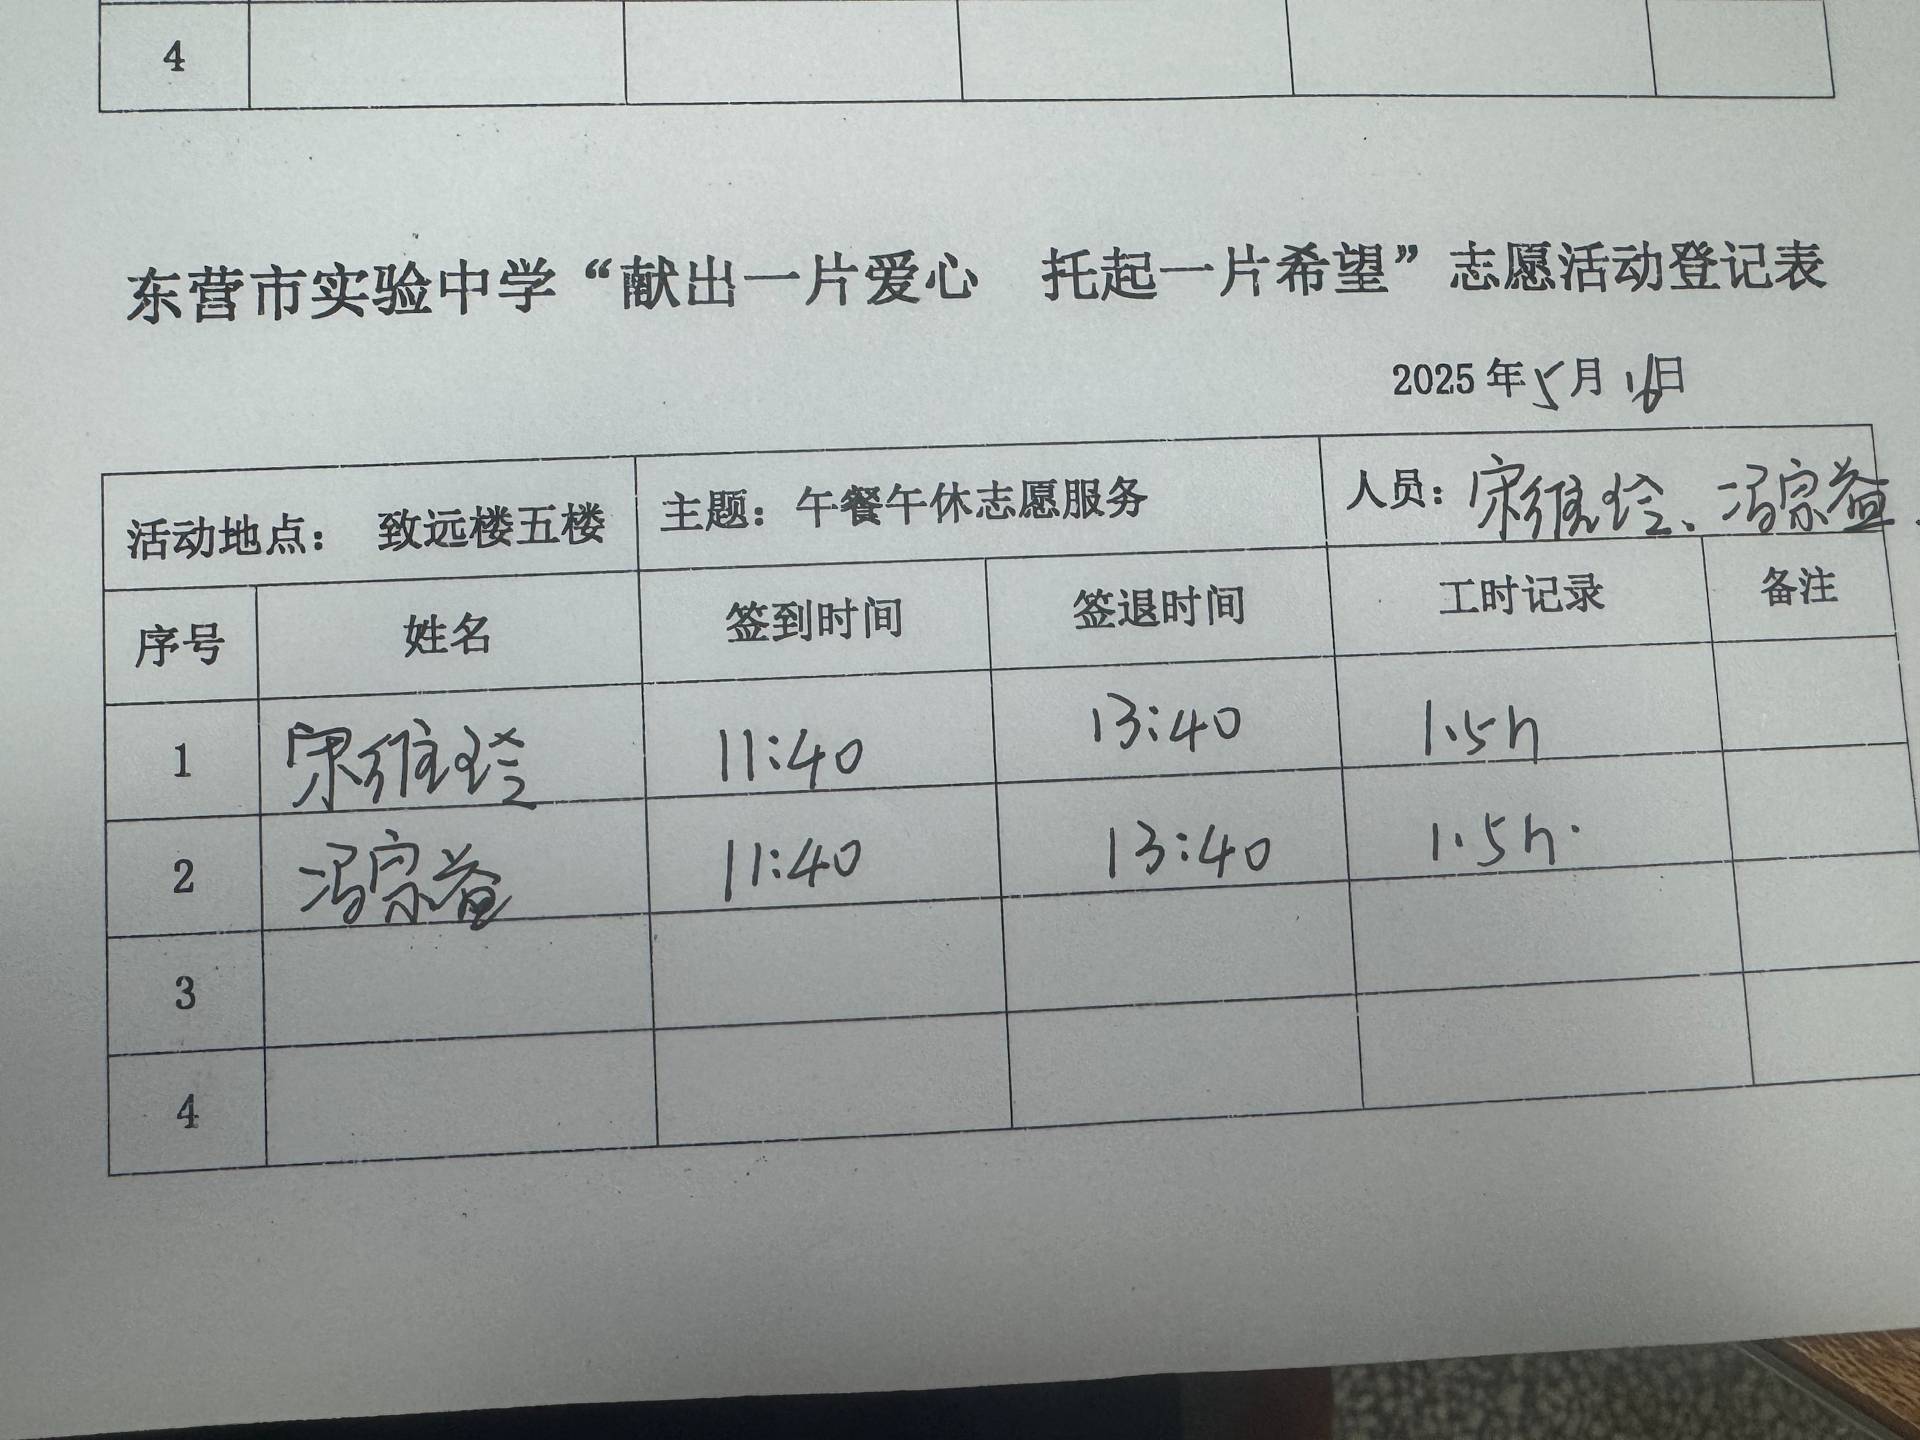 4
东营市实验中学“献出一片爱心 托起一片希望”志愿活动登记表
2025年5月16日
活动地点: 致远楼五楼 主题: 午餐午休志愿服务 人员: 宋维玲、冯宗益
序号 姓名 签到时间 签退时间 工时记录 备注
1 宋维玲 11:40 13:40 1.5h
2 冯宗益 11:40 13:40 1.5h.
3
4